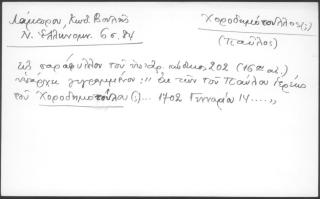 Λάμπρου, Κατ. Βουλῆς
Ν. Ἑλληνομν. 6 σ. 84
Χοροδημόπουλλος (;)
(Παῦλος)
παράφυλλον τοῦ κώδικος 202 (16ου αἰ.)
ὑπάρχει γεγραμμένον: " ἐκ τῶν τοῦ Παύλου ἱερέως
τοῦ Χοροδημοπούλου (;)... 1702 Γενναρίου 14 ....,,